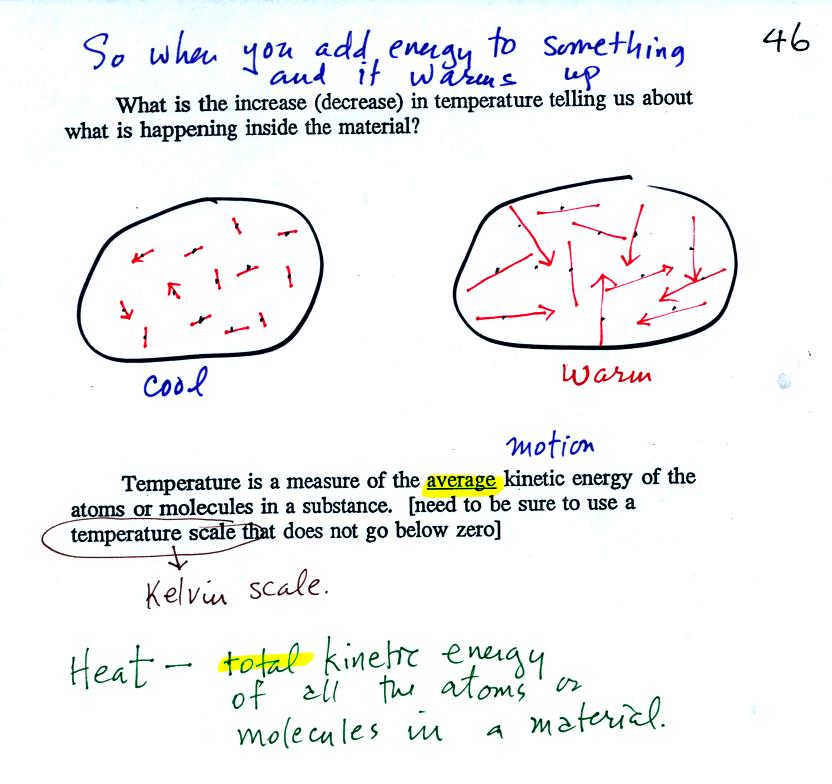 So when you add energy to something 46
and it warms up
What is the increase (decrease) in temperature telling us about
what is happening inside the material?
cool
Warm
motion
Temperature is a measure of the average kinetic energy of the
atoms or molecules in a substance. [need to be sure to use a
temperature scale that does not go below zero]
Kelvin scale.
Heat - total kinetic energy
of all the atoms or
molecules in a material.